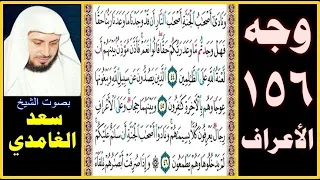 وجه
١٥٦
الأعراف
وَنَادَىٰٓ أَصۡحَٰبُ ٱلۡجَنَّةِ أَصۡحَٰبَ ٱلنَّارِ أَن قَدۡ وَجَدۡنَا مَا وَعَدَنَا رَبُّنَا حَقّٗا
فَهَلۡ وَجَدتُّم مَّا وَعَدَ رَبُّكُمۡ حَقّٗاۖ قَالُواْ نَعَمۡۚ فَأَذَّنَ مُؤَذِّنُۢ بَيۡنَهُمۡ أَن
لَّعۡنَةُ ٱللَّهِ عَلَى ٱلظَّٰلِمِينَ ٤٤ ٱلَّذِينَ يَصُدُّونَ عَن سَبِيلِ ٱللَّهِ وَيَبۡغُونَهَا
عِوَجٗا وَهُم بِٱلۡأٓخِرَةِ كَٰفِرُونَ ٤٥ وَبَيۡنَهُمَا حِجَابٞۚ وَعَلَى ٱلۡأَعۡرَافِ
رِجَالٞ يَعۡرِفُونَ كُلَّۢا بِسِيمَىٰهُمۡۚ وَنَادَوۡاْ أَصۡحَٰبَ ٱلۡجَنَّةِ أَن سَلَٰمٌ عَلَيۡكُمۡۚ
لَمۡ يَدۡخُلُوهَا وَهُمۡ يَطۡمَعُونَ ٤٦ ۞ وَإِذَا صُرِفَتۡ أَبۡصَٰرُهُمۡ تِلۡقَآءَ
بصوت الشيخ
سعد
الغامدي